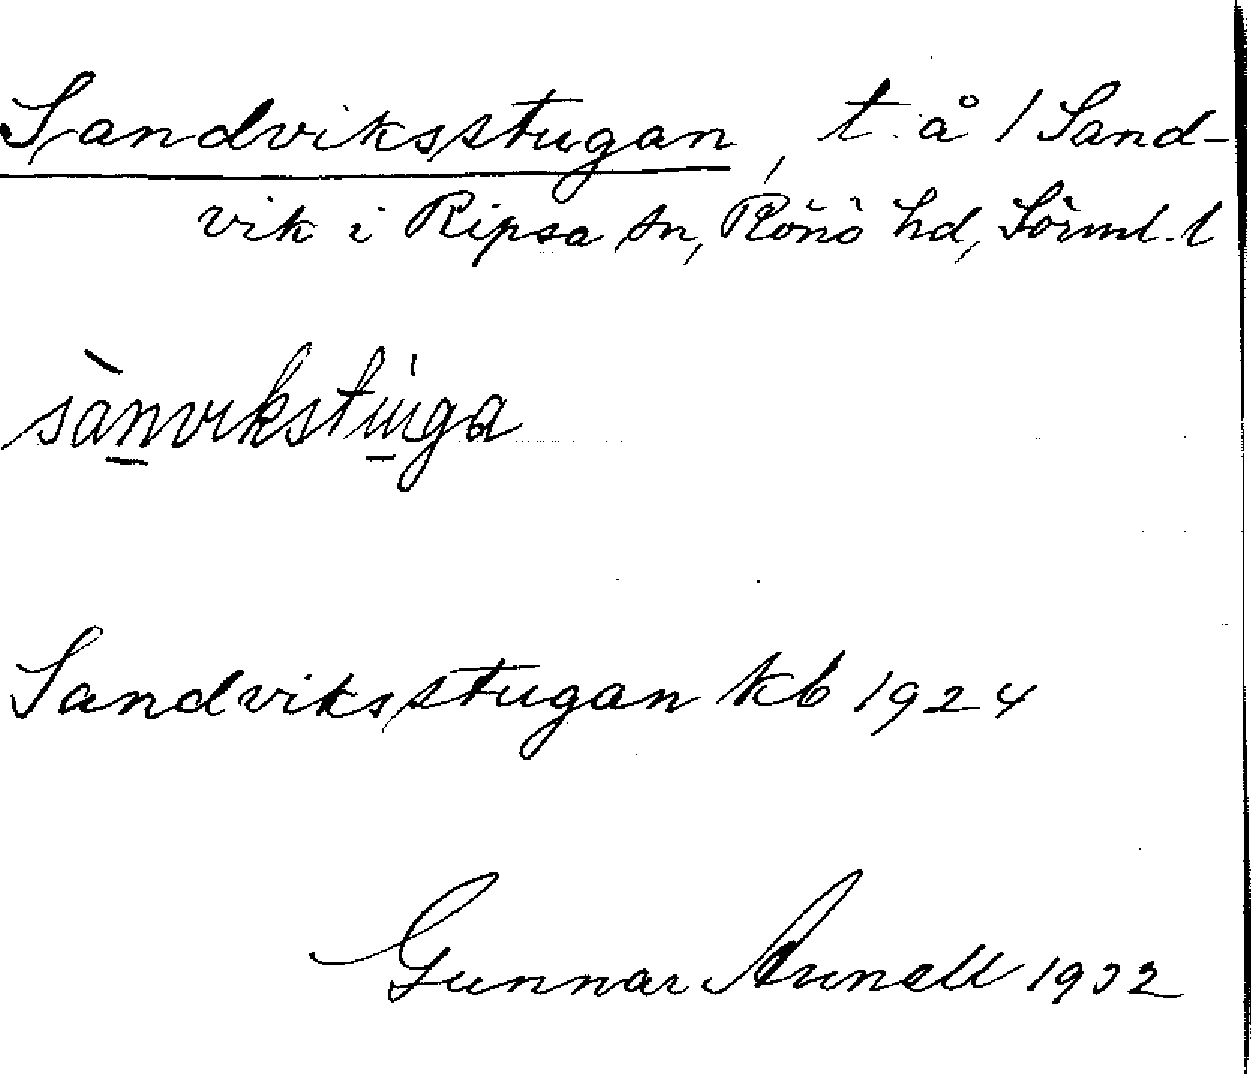 Sandviksstugan, t. å 1 Sand-
vik i Ripsa sn, Rönö hd, Sörml. l
sànvikstuga
Sandviksstugan kb 1924
Gunnar Arnell 1932